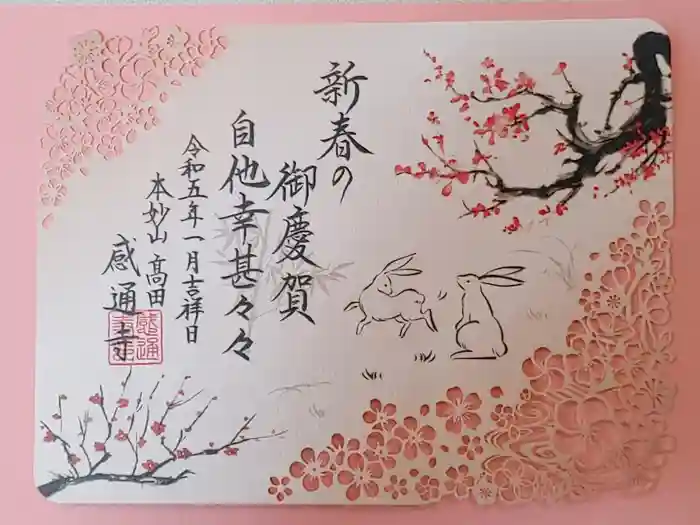 新春の
御慶賀
自他幸甚々々
令和五年一月吉祥日
本妙山高田
感通寺
感通